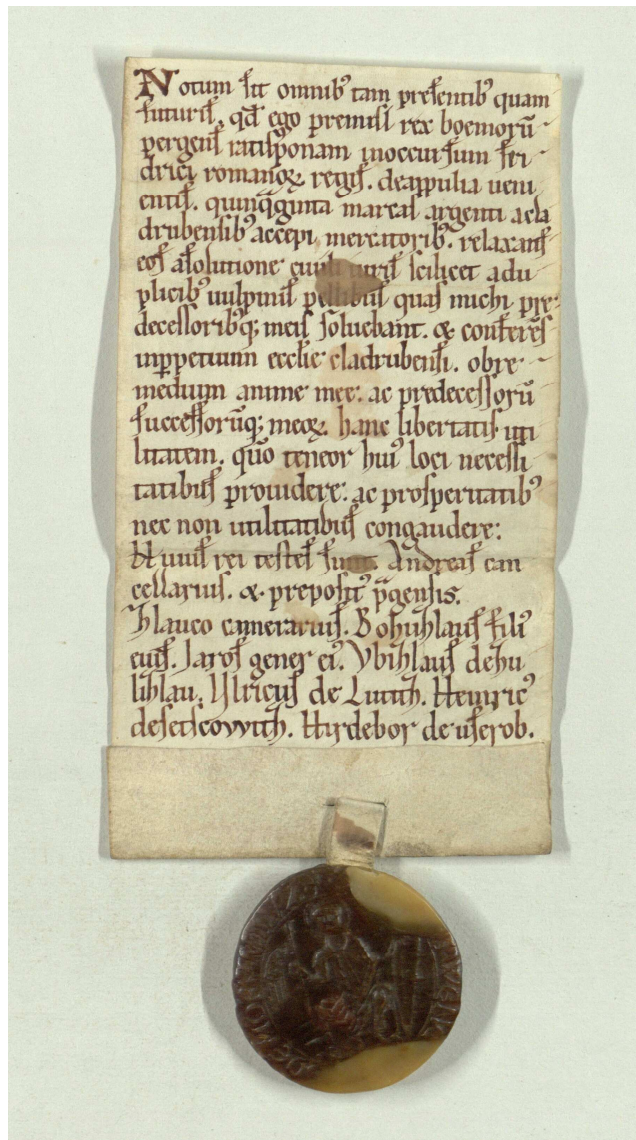 Notum sit omnibꝰ tam presentibꝰ quam
futuris, qđ ego premisl rex boemorū
pergens ratisponam inoccursum fri
drici romanoꝝ regis. deappulia ueni
entis. quinq̄ginta marcas argenti acla
drubensibꝰ accepi, mercatoribꝰ. relaxans
eos asolutione ciuilis iuris scilicet adu
plicibꝰ uulpinis pellibus quas michi pre
decessoribꝗ; meis soluebant. & conferēs
inꝑpetuum ecclie cladrubensi. obre
medium anime mee: ac predecessorū
successorūꝗ; meoꝝ. hanc libertatis uti
litatem. quo teneor huiꝰ loci necessi
tatibus prouidere: ac prosperitatibꝰ
nec non utilitatibus congaudere:
Huius rei testes sunt. Andreas can
cellarius. & prepositꝰ pragensis.
Zlauco camerarius. Bohuzlaus filiꝰ
eius. Jaros gener eiꝰ. Vbizlaus dehu
lizlau. Vlricus de Lutith. Heinricꝰ
desetscowith. Hirdebor de userob.